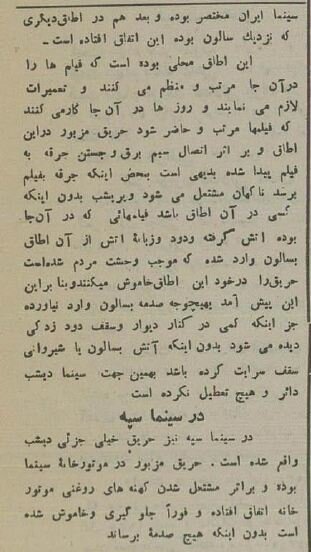 سینما ایران مختصر بوده و بعد هم در اطاق دیگری
که نزدیك سالون بوده این اتفاق افتاده است ـ
این اطاق محلی بوده است که فیلم ها را
در آن جا مرتب و منظم می کنند و تعمیرات
لازم می نمایند و روز ها در آن جا کار می کنند
که فیلمها مرتب و حاضر شود حریق مزبور در این
اطاق و بر اثر اتصال سیم برق و جستن جرقه به
فیلم پیدا شده بدیهی است بمحض اینکه جرقه بفیلم
برسد ناگهان مشتعل می شود و پریشب بدون اینکه
کسی در آن اطاق باشد فیلمهائی که در آن جا
بوده آتش گرفته و دود و زبانهٔ آتش از آن اطاق
بسالون وارد شده که موجب وحشت مردم شده است
حریق را در خود این اطاق خاموش میکنند و بنا بر این
این پیش آمد بهیچوجه صدمه بسالون وارد نیاورده
جز اینکه کمی در کنار دیوار و سقف دود زدکی
دیده می شود بدون اینکه آتش بسالون یا شیروانی
سقف سرایت کرده باشد بهمین جهت سینما دیشب
دائر و هیچ تعطیل نکرده است
در سینما سپه
در سینما سپه نیز حریق خیلی جزئی دیشب
واقع شده است . حریق مزبور در موتورخانهٔ سینما
بوده و بر اثر مشتعل شدن کهنه های روغنی موتور
خانه اتفاق افتاده و فوراً جلو گیری و خاموش شده
است بدون اینکه هیچ صدمهٔ برساند